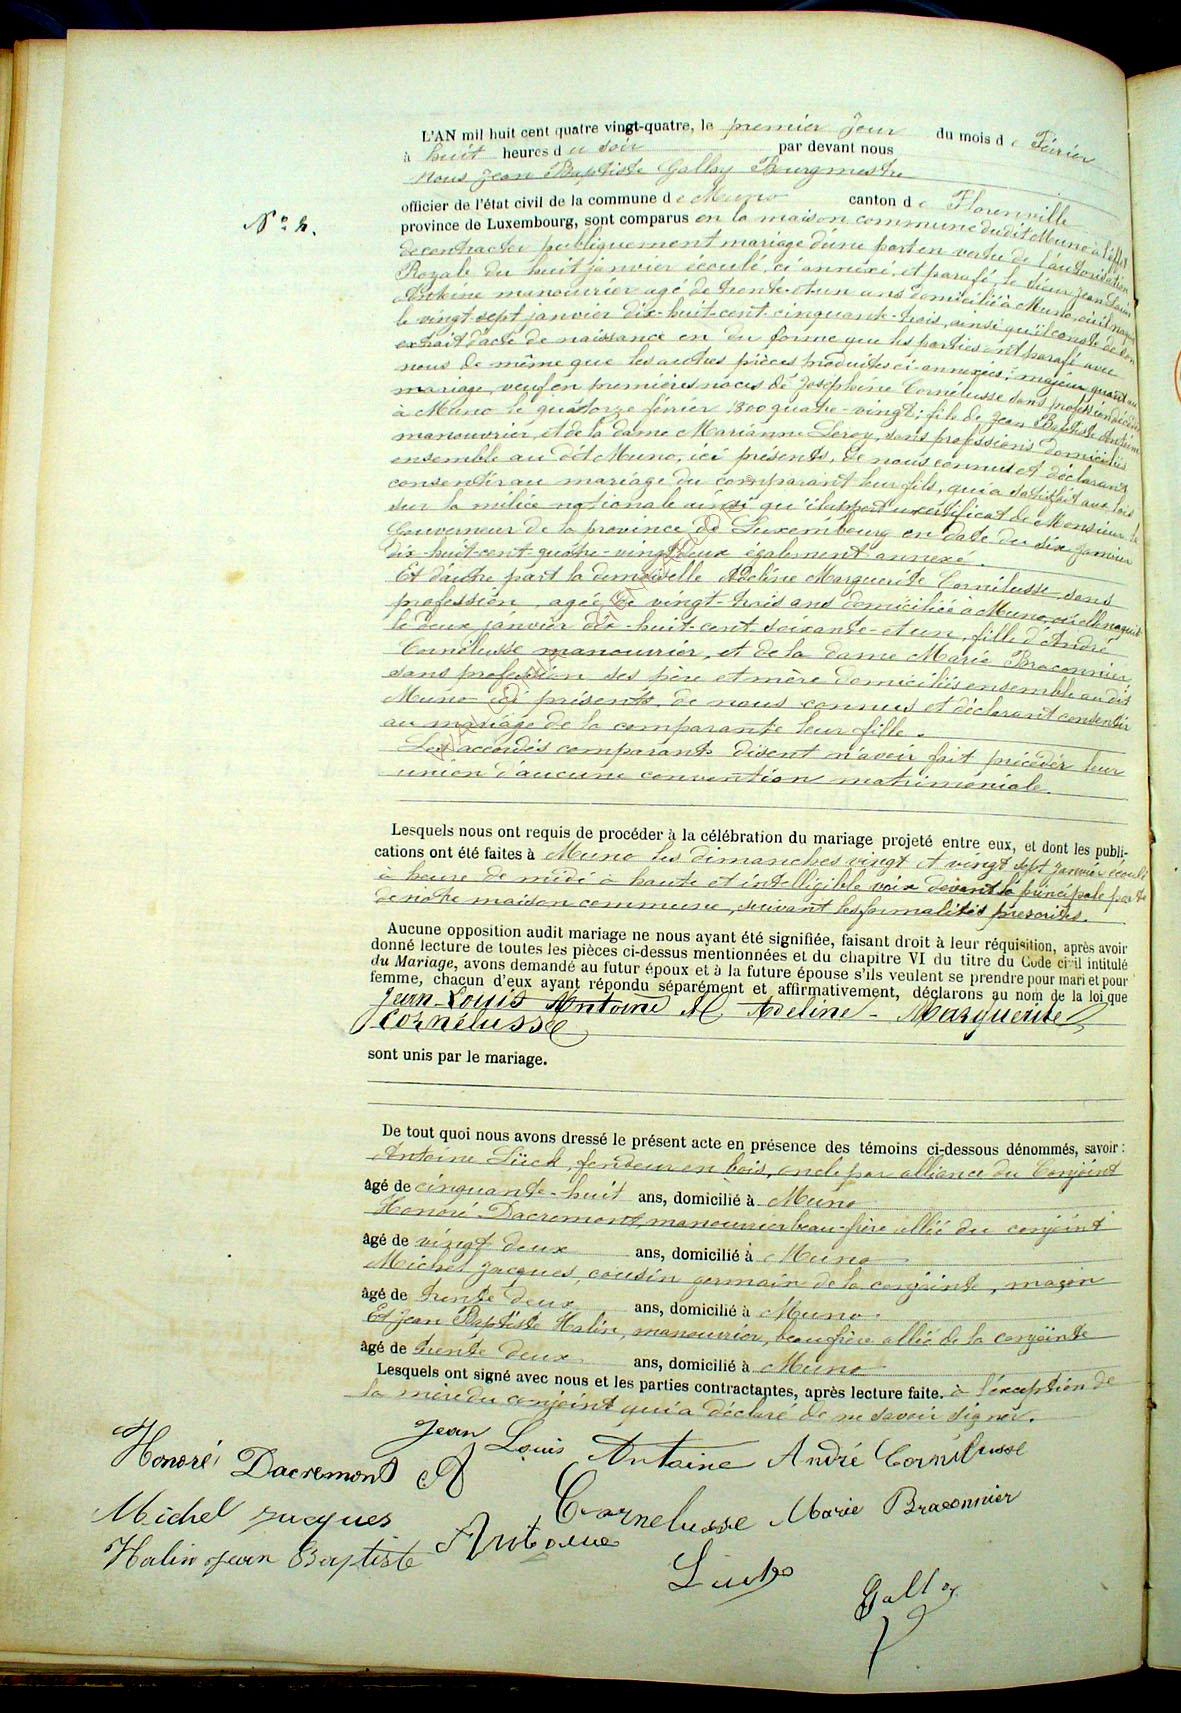 L'AN mil huit cent quatre vingt-quatre, le premier jour du mois de Février
à huit heures du soir par devant nous
Nous Jean Baptiste Galloy Bourgmestre
officier de l'état civil de la commune de Muno canton de Florenville
N° 2.
province de Luxembourg, sont comparus en la maison commune dudit Muno à l'effet
de contracter publiquement mariage d'une part en vertu de l'autorisation
Royale du huit janvier écoulé, ci annexé, et parafé, le sieur Jean Louis
Antoine manouvrier agé de trente-et-un ans domicilié à Muno, où il naquit
le vingt sept janvier dix-huit-cent-cinquante-trois, ainsi qu'il conste de son
extrait d'acte de naissance en due forme que les parties ont parafé avec
nous de même que les autres pièces produites ci-annexées; majeur quant au
mariage, veuf en premières noces de Joséphine Cornélusse sans profession décédée
à Muno le quatorze février 1800 quatre-vingt; fils de Jean Baptiste Antoine
manouvrier, et de la dame Marianne Leroy, sans professions domiciliés
ensemble au dit Muno, ici présents, de nous connus et déclarant
consentir au mariage du comparant leur fils, qui a satisfait aux lois
sur la milice nationale ainsi qu'il appert du certificat de Monsieur le
Gouverneur de la province de Luxembourg en date du dix janvier
dix-huit-cent-quatre-vingt deux également annexé.
Et d'autre part la demoiselle Adeline Marguerite Cornélusse sans
profession, agée de vingt-trois ans domiciliée à Muno, où elle naquit
le deux janvier dix-huit-cent-soixante-et-un, fille d'André
Cornélusse manouvrier, et de la dame Marie Braconnier
sans profession ses père et mère domiciliés ensemble au dit
Muno ici présents, de nous connus et déclarant consentir
au mariage de la comparante leur fille.
Les accordés comparants disent n'avoir fait précéder leur
union d'aucune convention matrimoniale.
Lesquels nous ont requis de procéder à la célébration du mariage projeté entre eux, et dont les publi-
cations ont été faites à Muno les dimanches vingt et vingt sept janvier écoulé
à heure de midi à haute et intelligible voix devant la principale porte
de notre maison commune, suivant les formalités prescrites.
Aucune opposition audit mariage ne nous ayant été signifiée, faisant droit à leur réquisition, après avoir
donné lecture de toutes les pièces ci-dessus mentionnées et du chapitre VI du titre du Code civil intitulé
du Mariage, avons demandé au futur époux et à la future épouse s'ils veulent se prendre pour mari et pour
femme, chacun d'eux ayant répondu séparément et affirmativement, déclarons au nom de la loi que
Jean-Louis Antoine et Adeline-Marguerite
Cornélusse
sont unis par le mariage.
De tout quoi nous avons dressé le présent acte en présence des témoins ci-dessous dénommés, savoir:
Antoine Lück, fendeur en bois, oncle par alliance du Conjoint
âgé de cinquante-huit ans, domicilié à Muno
Honoré Dacremont, manouvrier beau-frère allié du conjoint
âgé de vingt deux ans, domicilié à Muno
Michel Jacques, cousin germain de la conjointe, maçon
âgé de trente deux ans, domicilié à Muno
Et Jean Baptiste Halin, manouvrier, beau frère allié de la conjointe
âgé de trente deux ans, domicilié à Muno
Lesquels ont signé avec nous et les parties contractantes, après lecture faite. à l'exception de
la mère du conjoint qui a déclaré de ne savoir signer.
Jean Louis Antoine André Cornélusse
Honoré Dacremont A Cornelusse Marie Braconnier
Michel Jacques Antoine
Halin Jean Baptiste Luck
Galloy